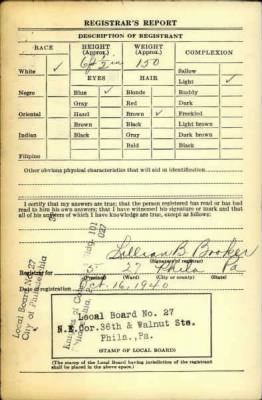 REGISTRAR'S REPORT
DESCRIPTION OF REGISTRANT
RACE HEIGHT (Approx.) WEIGHT (Approx.) COMPLEXION
6 ft 2 in 150
White ✓ Sallow
EYES HAIR Light ✓
Negro Blue ✓ Blonde Ruddy
Gray Red Dark
Oriental Hazel Brown ✓ Freckled
Brown Black Light brown
Indian Black Gray Dark brown
Bald Black
Filipino
Other obvious physical characteristics that will aid in identification
I certify that my answers are true; that the person registered has read or has had
read to him his own answers; that I have witnessed his signature or mark and that
all of his answers of which I have knowledge are true, except as follows:
Lillian B Booker
(Signature of registrar)
Registrar for 5 22 Phila Pa
(Precinct) (Ward) (City or county) (State)
Date of registration Oct. 16, 1940
Local Board No. 27
City of Philadelphia
Local Board No. 27
N.E.Cor. 36th & Walnut Sts.
Phila., Pa.
(STAMP OF LOCAL BOARD)
(The stamp of the Local Board having jurisdiction of the registrant
shall be placed in the above space.)